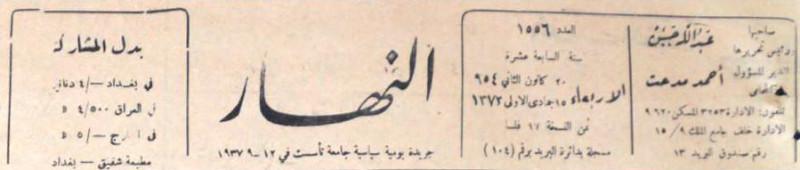 صاحبها
ورئيس تحريرها
عبد الله حسن
المدير المسؤول
أحمد مدحت
المحامي
تلفون: الادارة ٣٢٥٣ المسكن ٩٦٢٠
الادارة خلف جامع الملك ٩ / ١٥
رقم صندوق البريد ١٣
العدد ١٥٥٦
سنة السابعة عشرة
٢٠ كانون الثاني ٩٥٤
الاربعاء
١٥ جمادى الاولى ١٣٧٣
ثمن النسخة ١٧ فلسا
مسجلة بدائرة البريد برقم (١٠٤)
النهار
جريدة يومية سياسية جامعة تأسست في ١٢-٩-١٩٣٧
بدل المشاركة
في بغداد —/٤ دنانير
في العراق ٤/٥٠٠ د
في الخارج —/٥ د
مطبعة شفيق — بغداد